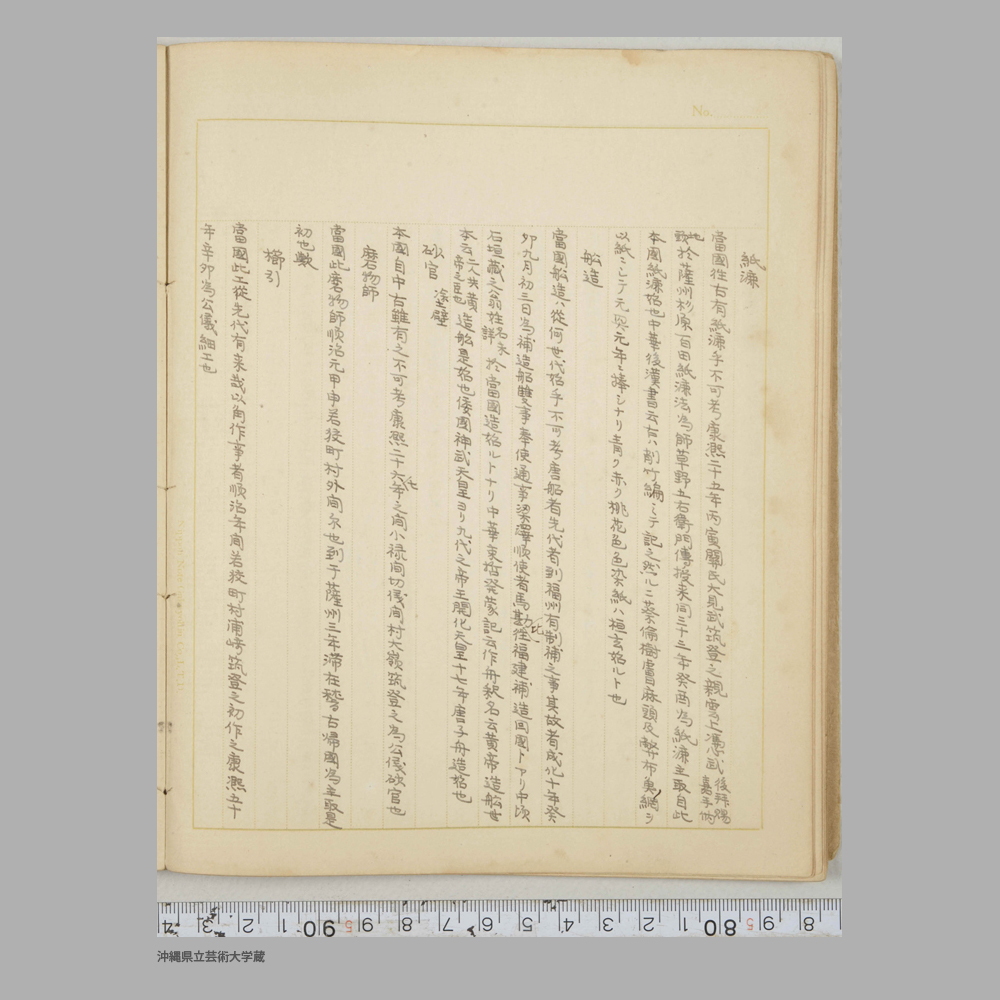 No.
紙漉
當國往古有紙漉乎不可考康凞二十五年丙寅關氏大見武筑登之親雲上憑武 後拜賜嘉手納
地
致於薩州杉原百田紙漉法為師草野五右衛門傳授来同三十三年癸酉為紙漉主取自此
本國紙漉始也中華後漢書云古ハ削竹編シテ記之然ルニ蔡倫樹膚麻頭及敝布魚網ヲ
以紙ニシテ元興元年ニ捧シナリ青ク赤ク桃花色色染紙ハ桓玄始ルト也
船造
當國船造ハ從何世代始乎不可考唐船者先代者到福州有制補之事其故者成化十年癸
卯九月初三日為補造船隻事奉使通事梁澤順使者馬勘往福建補造回國トアリ中頃
此
石垣藏之翁姓名未詳 於當國造始ルトナリ中華束皙発蒙記云作舟釈名云黄帝造船世
本云二人共黄帝之臣也 造船是始也倭國神武天皇ヨリ九代之帝王開化天皇十七年唐子舟造始也
砂官 塗壁
本國自中古雖有之不可考康凞二十六年之間小禄間切儀間村大嶺筑登之為公儀砂官也
磨物師
當國此磨物師順治元甲申若狡町村外間尓也到于薩州三年滞在稽古帰國為主取是
初也歟
櫛引
當國此工從先代有来哉以角作事者順治年間若狡町村浦崎筑登之初作之康凞五十
年辛卯為公儀細工也
8 9 80 1 2 3 4 5 6 7 8 9 90 1 2 3 4
沖縄県立芸術大学蔵